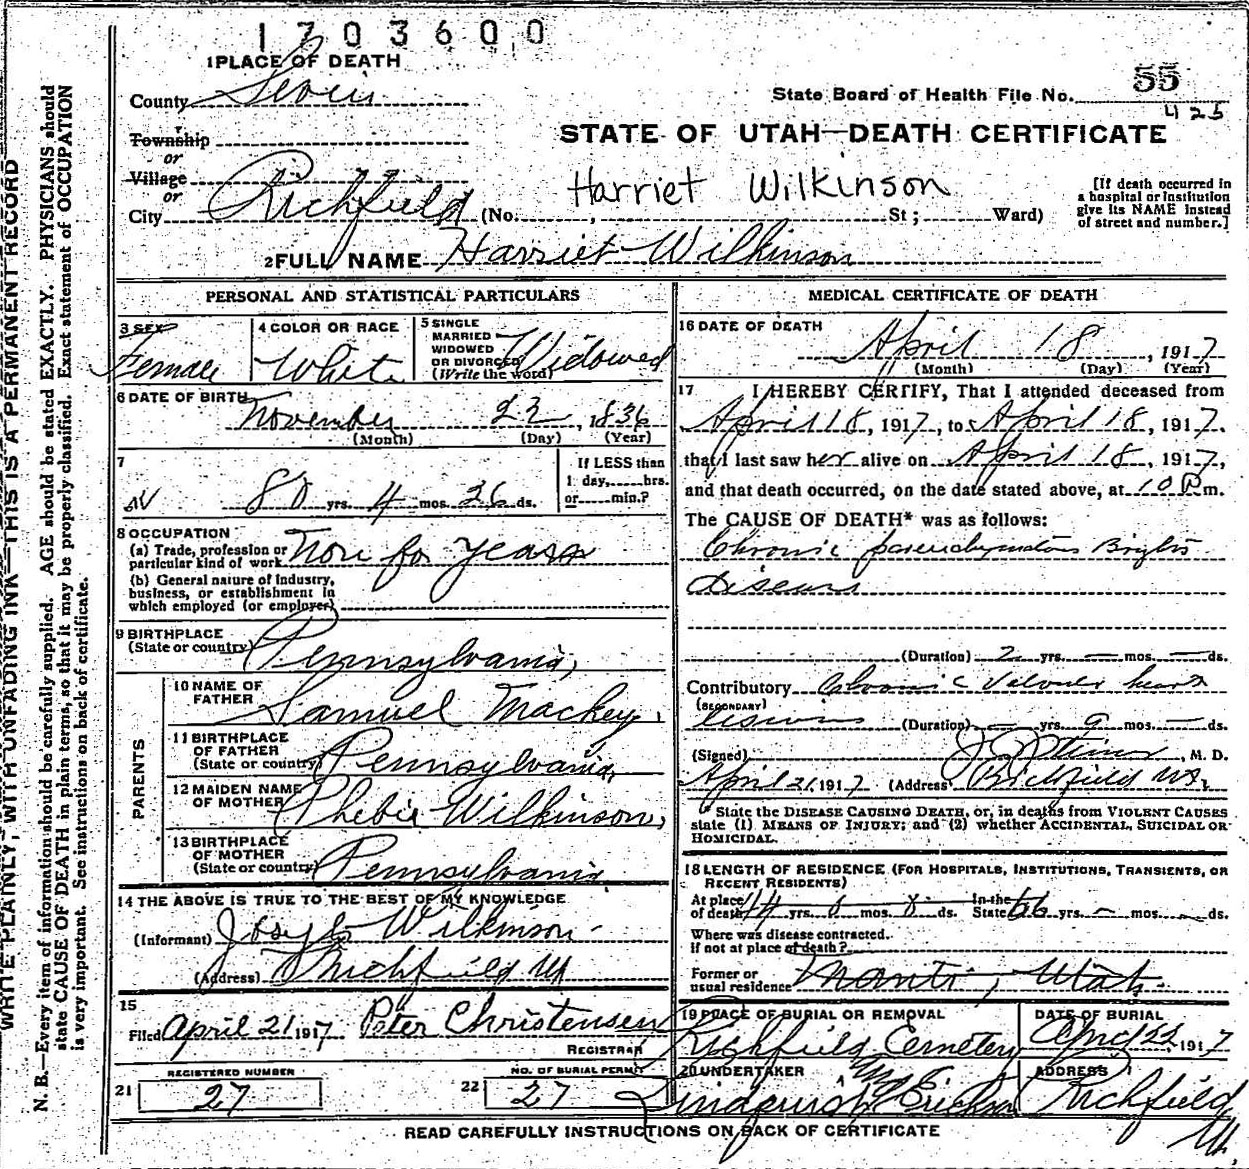 1703600
1 PLACE OF DEATH
County Sevier
State Board of Health File No. 55
425
Township
or
STATE OF UTAH—DEATH CERTIFICATE
Village
or
Harriet Wilkinson
City Richfield (No. , St; Ward)
[If death occurred in
a hospital or institution
give its NAME instead
of street and number.]
2 FULL NAME Harriet Wilkinson
PERSONAL AND STATISTICAL PARTICULARS
3 SEX
Female
4 COLOR OR RACE
White
5 SINGLE
MARRIED
WIDOWED
OR DIVORCED
(Write the word)
Widowed
6 DATE OF BIRTH
November 23, 1836
(Month) (Day) (Year)
7
80 yrs. 4 mos. 26 ds.
If LESS than
1 day, hrs.
or min.?
8 OCCUPATION
(a) Trade, profession or
particular kind of work for years
(b) General nature of industry,
business, or establishment in
which employed (or employer)
9 BIRTHPLACE
(State or country) Pennsylvania,
PARENTS
10 NAME OF
FATHER Samuel Mackey,
11 BIRTHPLACE
OF FATHER
(State or country) Pennsylvania,
12 MAIDEN NAME
OF MOTHER Phebie Wilkinson,
13 BIRTHPLACE
OF MOTHER
(State or country) Pennsylvania
14 THE ABOVE IS TRUE TO THE BEST OF MY KNOWLEDGE
(Informant) Joseph Wilkinson
(Address) Richfield Ut
15
Filed April 21 1917 Peter Christensen
REGISTRAR
21 REGISTERED NUMBER
27
22 NO. OF BURIAL PERMIT
27
MEDICAL CERTIFICATE OF DEATH
16 DATE OF DEATH
April 18, 1917
(Month) (Day) (Year)
17 I HEREBY CERTIFY, That I attended deceased from
April 18, 1917, to April 18, 1917.
that I last saw her alive on April 18, 1917,
and that death occurred, on the date stated above, at 10 P m.
The CAUSE OF DEATH* was as follows:
Chronic parenchymatous Brights
disease
(Duration) 2 yrs. — mos. — ds.
Contributory Chronic valvular heart
(SECONDARY)
(Duration) — yrs. 9 mos. — ds.
(Signed) , M. D.
April 21, 1917 (Address) Richfield Ut.
* State the DISEASE CAUSING DEATH, or, in deaths from VIOLENT CAUSES
state (1) MEANS OF INJURY; and (2) whether ACCIDENTAL, SUICIDAL OR
HOMICIDAL.
18 LENGTH OF RESIDENCE (FOR HOSPITALS, INSTITUTIONS, TRANSIENTS, OR
RECENT RESIDENTS)
At place
of death 44 yrs. mos. ds. In the
State 66 yrs. — mos. — ds.
Where was disease contracted.
if not at place of death?
Former or
usual residence Manti, Utah.
19 PLACE OF BURIAL OR REMOVAL
Richfield Cemetery
DATE OF BURIAL
April 22, 1917
20 UNDERTAKER
ADDRESS
Richfield
Ut.
READ CAREFULLY INSTRUCTIONS ON BACK OF CERTIFICATE
WRITE PLAINLY, WITH UNFADING INK—THIS IS A PERMANENT RECORD
N. B.—Every item of information should be carefully supplied. AGE should be stated EXACTLY. PHYSICIANS should
state CAUSE OF DEATH in plain terms, so that it may be properly classified. Exact statement of OCCUPATION
is very important. See instructions on back of certificate.